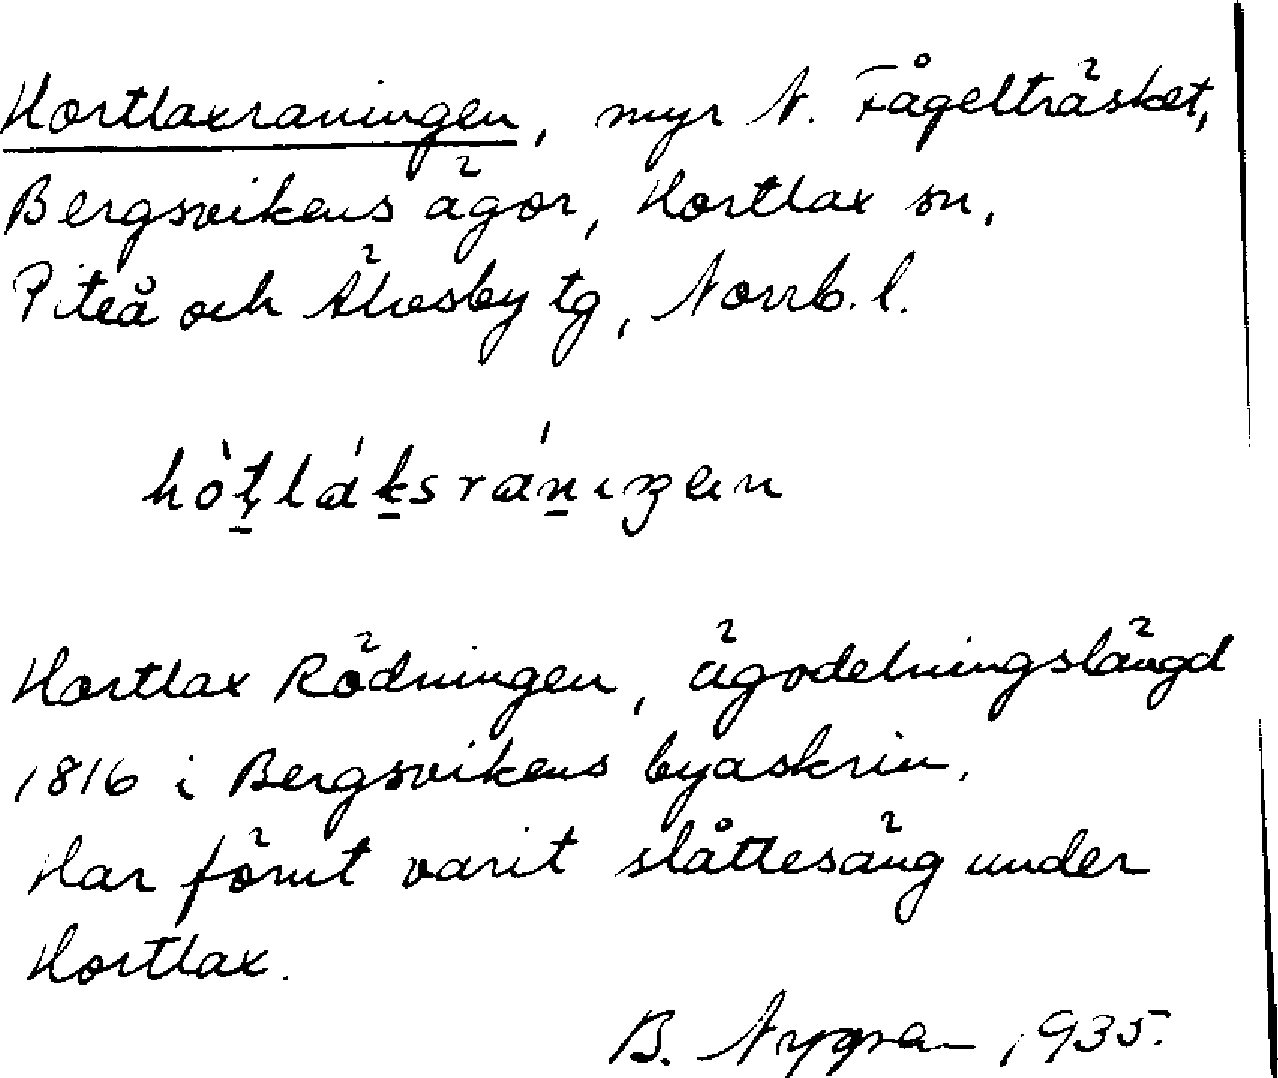 Hortlaxraningen, myr N. Fågelträsket,
Bergsvikens ägor, Hortlax sn,
Piteå och Älvsby tg, Norrb. l.
hòṭláksránıŋen
Hortlax Rödningen, ägodelningslängd
1816 i Bergsvikens byaskrin.
Har förut varit slåttesäng under
Hortlax.
B. Nygren 1935.